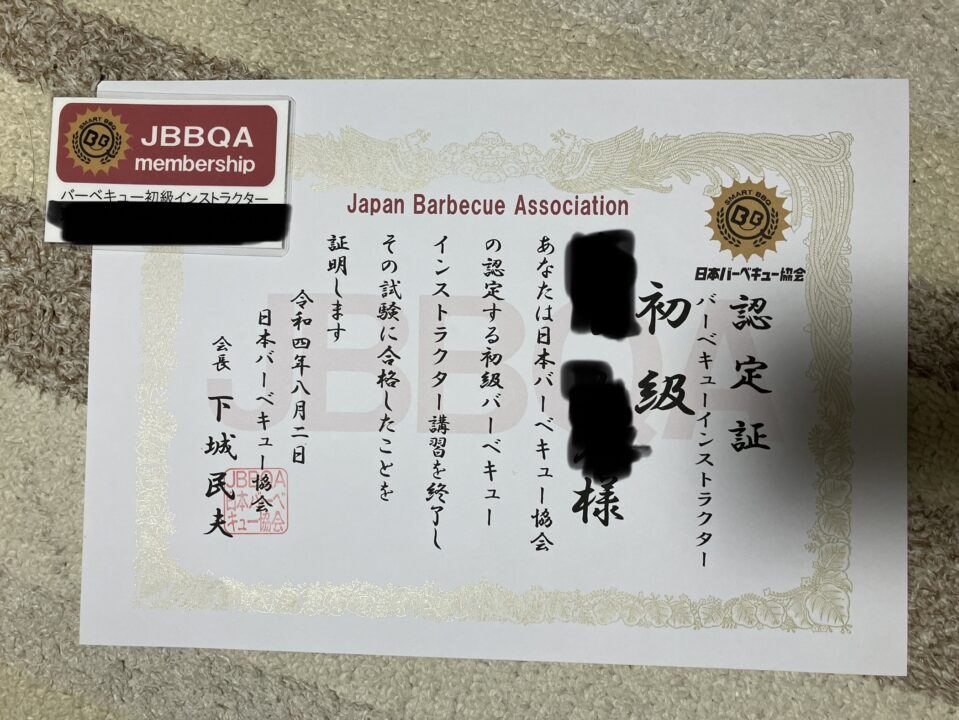 SMART BBQ
BBQ
JBBQA
membership
バーベキュー初級インストラクター
Japan Barbecue Association
SMART BBQ
BBQ
日本バーベキュー協会
JBBQA
認定証
バーベキューインストラクター
初級
様
あなたは日本バーベキュー協会
の認定する初級バーベキュー
インストラクター講習を終了し
その試験に合格したことを
証明します
令和四年八月二日
日本バーベキュー協会
会長 下城民夫
JBBQA
日本バーベ
キュー協会